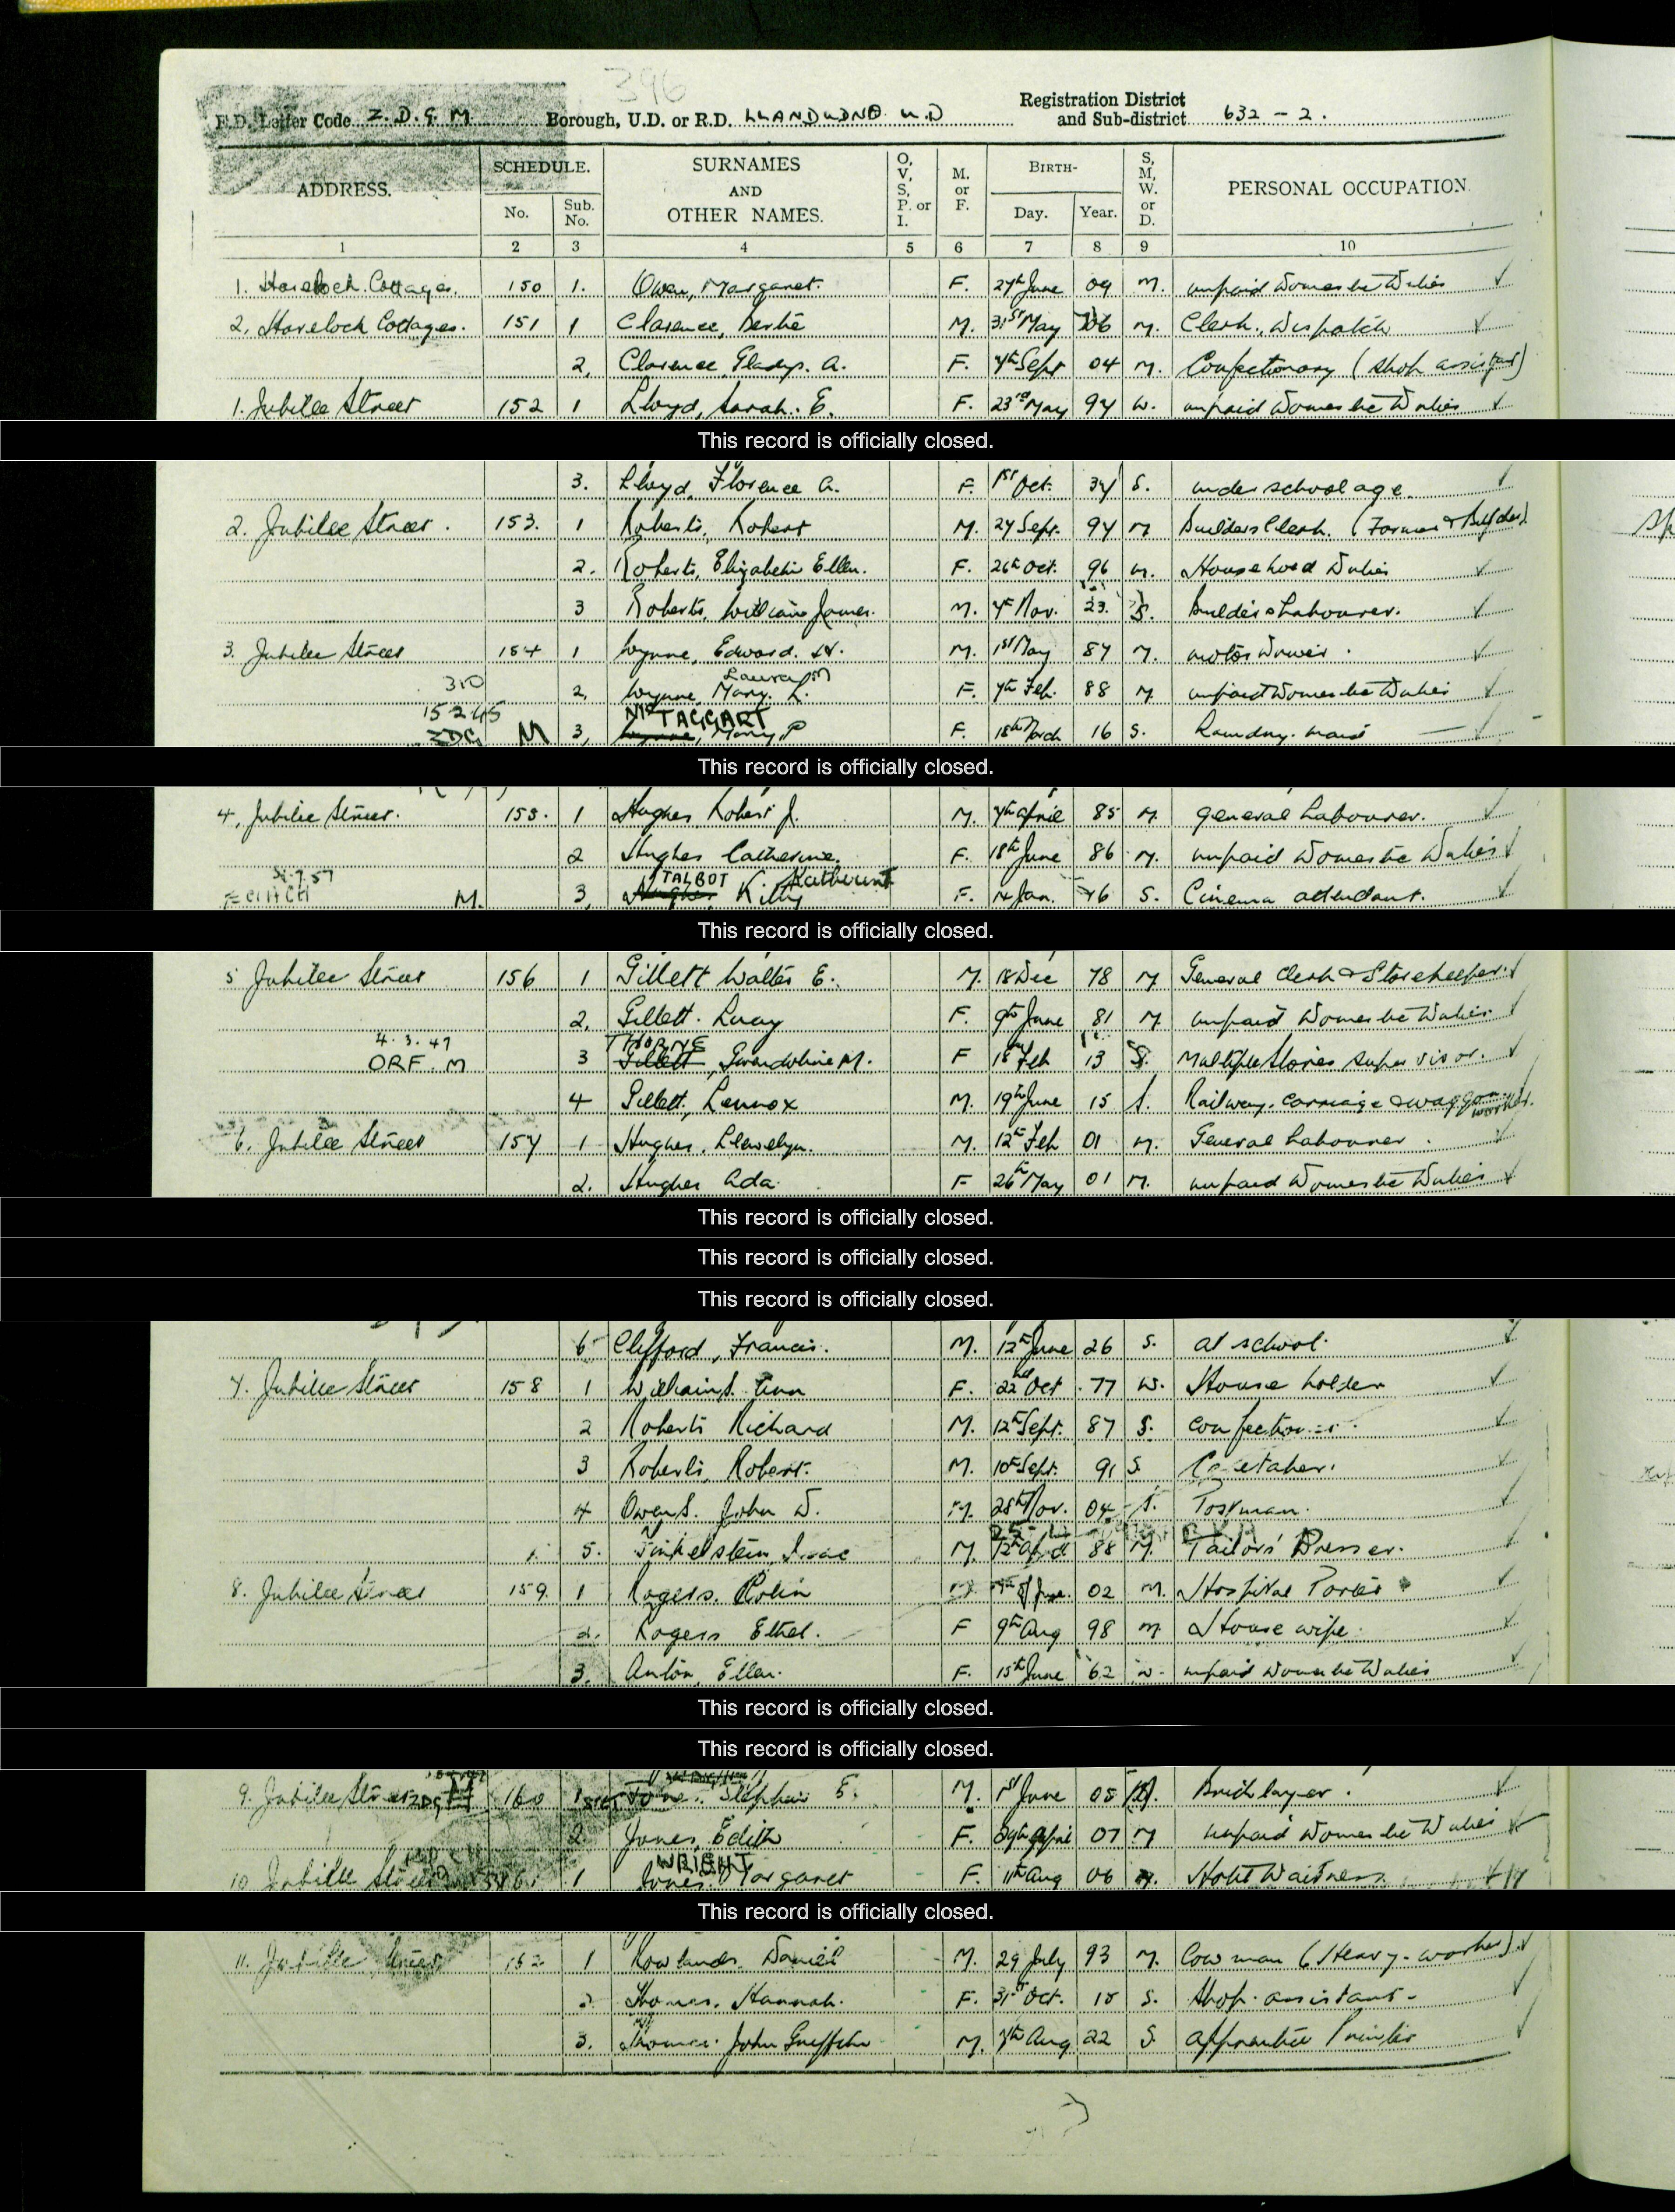 396
E.D. Letter Code Z.D.G.M Borough, U.D. or R.D. LLANDUDNO U.D Registration District and Sub-district 632 - 2.
ADDRESS. SCHEDULE. No. Sub. No. SURNAMES AND OTHER NAMES. O, V, S, P. or I. M. or F. BIRTH- Day. Year. S, M, W. or D. PERSONAL OCCUPATION
1 2 3 4 5 6 7 8 9 10
1. Havelock Cottages. 150 1. Owen, Margaret. F. 27th June 09 M. unpaid Domestic Duties
2, Havelock Cottages. 151 1 Clarence, Bertie M. 31st May 06 M. Clerk, Dispatch
2, Clarence, Gladys. A. F. 7th Sept 04 M. Confectionary (Shop assistant)
1. Jubilee Street 152 1 Lloyd, Sarah. E. F. 23rd May 97 W. unpaid Domestic Duties
This record is officially closed.
3. Lloyd, Florence A. F. 1st Oct. 34 S. under school age
2. Jubilee Street. 153. 1 Roberts, Robert M. 27 Sept. 97 M Builders Clerk.
2. Roberts, Elizabeth Ellen. F. 26th Oct. 96 M. Household Duties
3 Roberts, William James. M. 4th Nov. 23. S. Builders Labourer.
3. Jubilee Street 154 1 Wynne, Edward. W. M. 1st May 87 M. Motor Driver.
310 Laura M
2, Wynne, Mary. L. F. 7th Feb. 88 M. unpaid Domestic Duties
15 2 45 McTAGGART
ZDG M 3, Wynne, Mary P F. 18th March 16 S. Laundry maid
This record is officially closed.
4, Jubilee Street. 155. 1 Hughes, Robert J. M. 7th April 85 M. general Labourer.
2 Hughes Catherine. F. 18th June 86 M. unpaid Domestic Duties
TALBOT Katherine
M. 3, Hughes Kitty F. Jan. 16 S. Cinema attendant.
This record is officially closed.
5 Jubilee Street 156 1 Gillett Walter E. M. 18 Dec 78 M General Clerk & Storekeeper.
2, Gillett. Lucy F. 9th June 81 M unpaid Domestic Duties
4.3.47 THORNE
ORF. M 3 Gillett, Gwendoline M. F 18 Feb 13 S. Multiple Stores supervisor.
4 Gillett, Lennox M. 19th June 15 S. Railway, carriage & waggon worker.
6. Jubilee Street 157 1 Hughes, Llewelyn. M. 12th Feb 01 M. General Labourer.
2. Hughes Ada. F 26th May 01 M. unpaid Domestic Duties
This record is officially closed.
This record is officially closed.
This record is officially closed.
6 Clifford, Francis. M. 12th June 26 S. at school.
7. Jubilee Street 158 1 Williams. Ann F. 22nd Oct. 77 W. House holder
2 Roberts Richard M. 12th Sept. 87 S.
3 Roberts, Robert. M. 10th Sept. 91 S. Caretaker.
4 Owens. John D. M. 28th Nov. 04 S. Postman.
5. Finkelstein, Isaac M. 12th April 88 M. Tailors' Presser.
8. Jubilee Street 159. 1 Rogers. Robin 02 M. Hospital Porter
2. Rogers Ethel. F 9th Aug 98 M House wife.
3. Anton, Ellen. F. 15th June 62 W. unpaid Domestic Duties
This record is officially closed.
This record is officially closed.
9. Jubilee Street 160 1 Stephen E. M. 1st June 05 M. Bricklayer.
2 Jones, Edith F. April 07 M unpaid Domestic Duties
WRIGHT
10 Jubilee Street 161 1 Jones. Margaret F. 11th Aug 06 Hotel Waitress
This record is officially closed.
11. Jubilee Street 162 1 Rowlands. Daniel M. 29 July 93 M. Cow man (Heavy worker)
2 Thomas. Hannah. F. 31st Oct. 18 S. Shop assistant
3. Thomas. John Griffith M. 7th Aug 22 S. Apprentice Printer